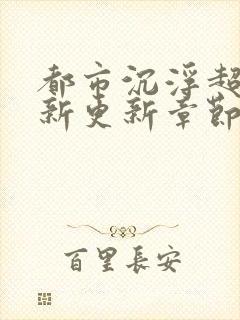 都市沉浮超
新更新章節
百里長安